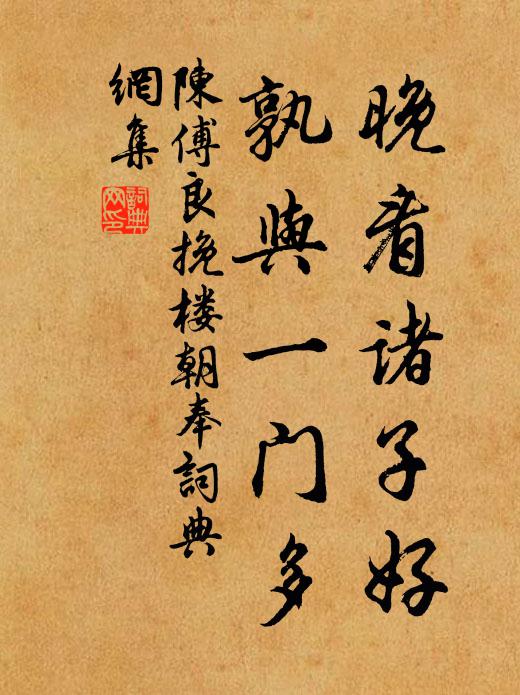 晚看诸子好
孰與一门多
陳傅良挽楼朝奉詞典
網集
詞典
网印